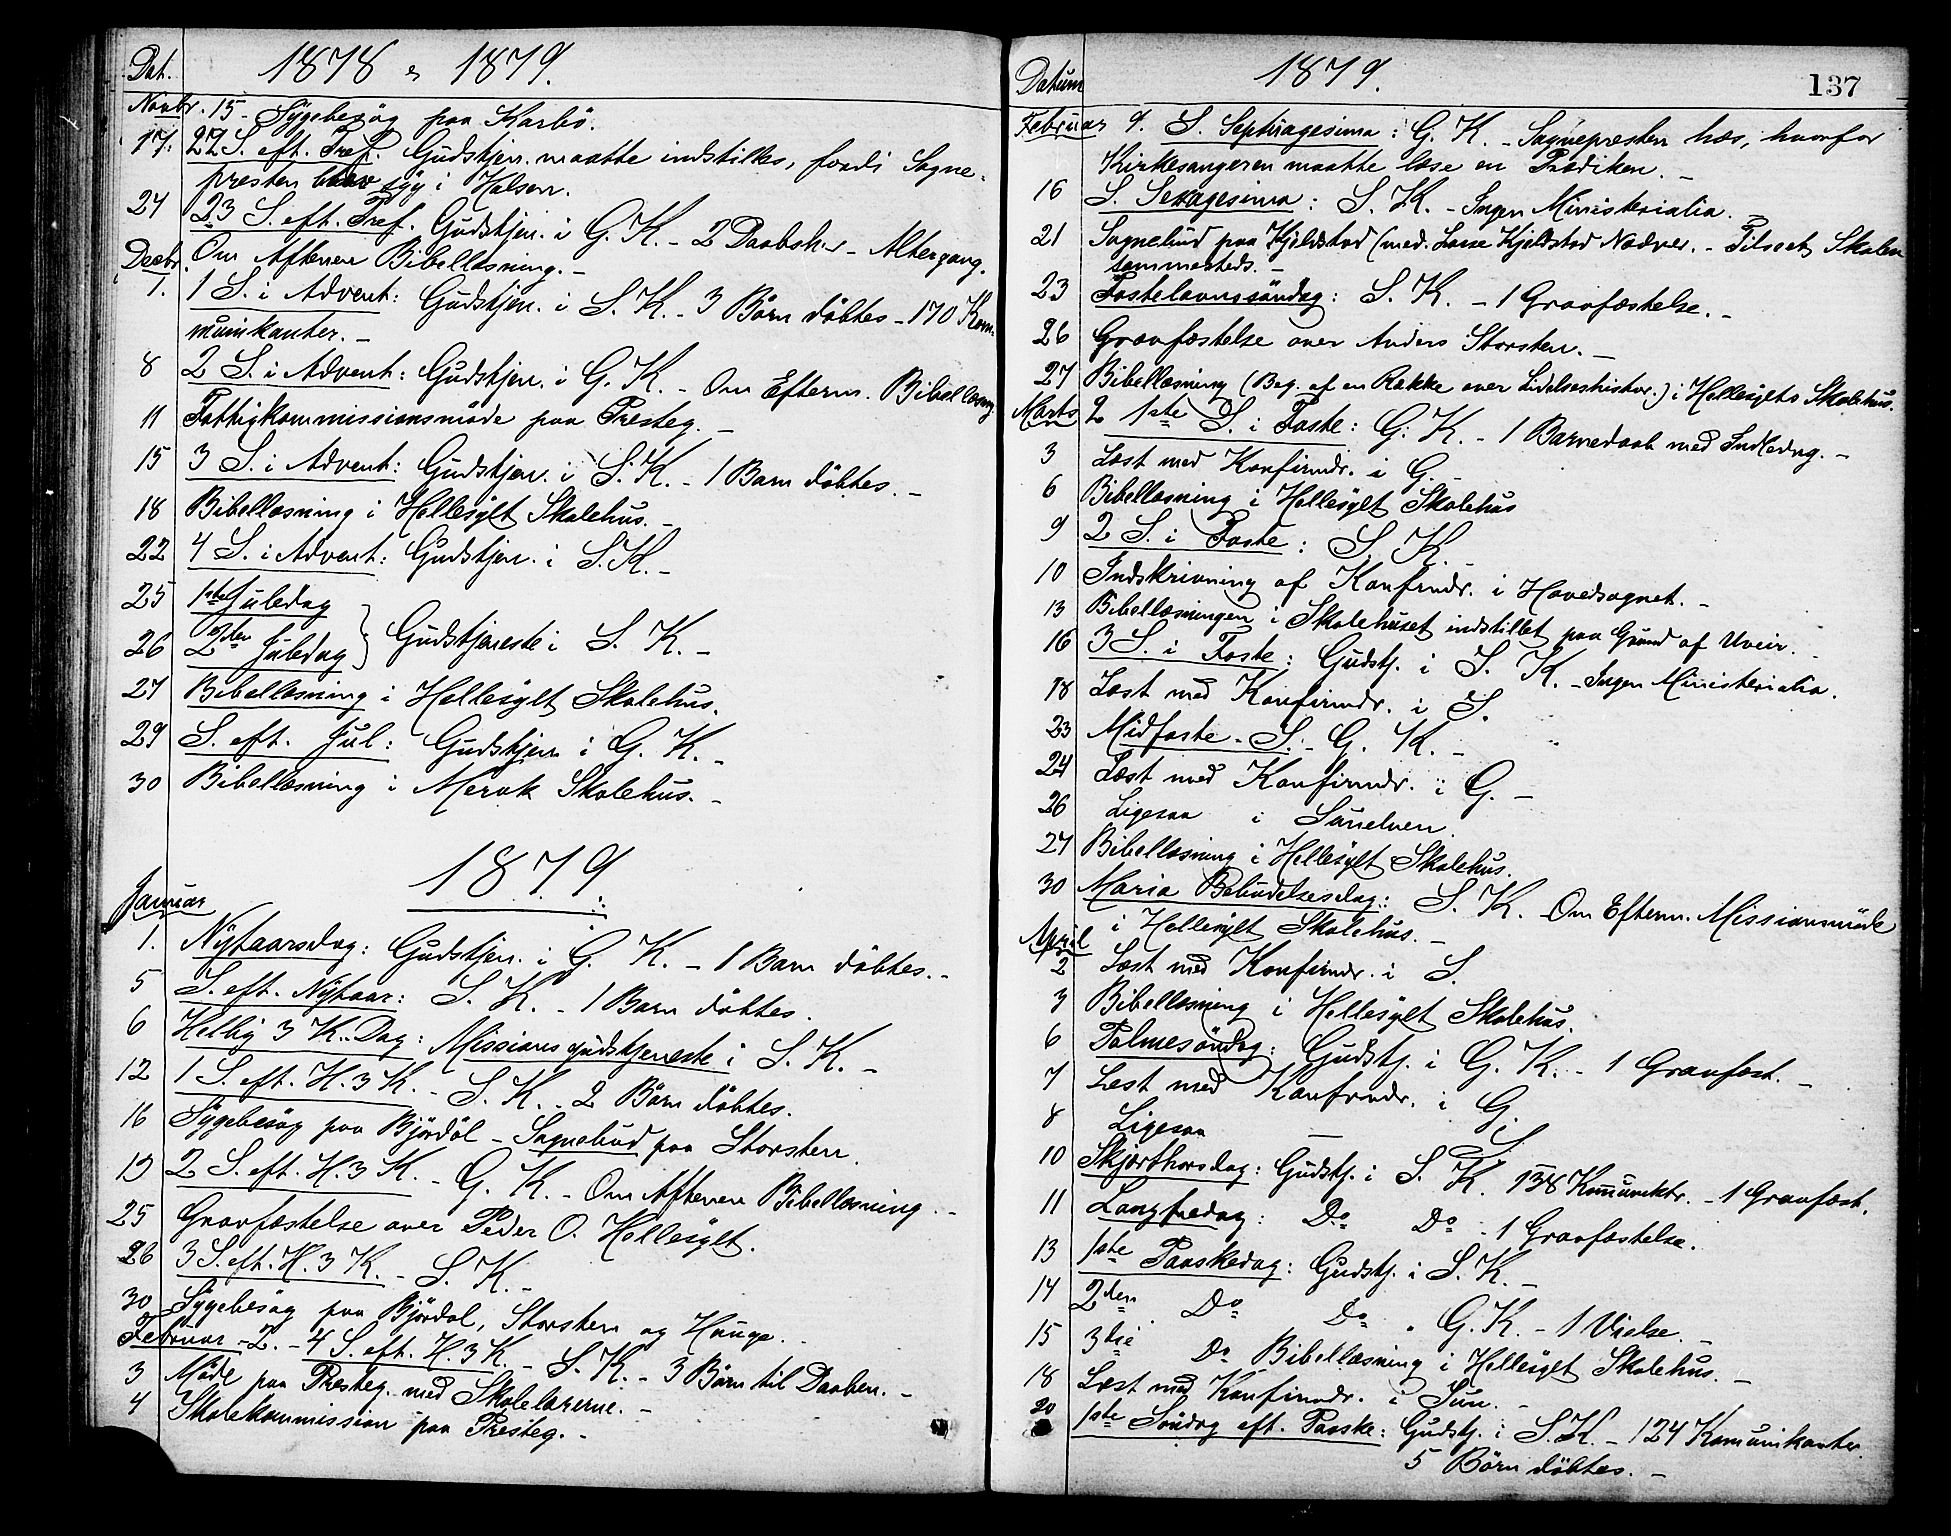 Dat. 1878 & 1879.
Novbr. 15 - Sygebesøg paa Karbø.
17. 22 S. eft. Tref. Gudstjen. maatte indstilles, fordi Sogne-
presten blev syg i Halsen.
24 23 S. eft. Tref. Gudstjen. i G. K. - 2 Daabsh. - Altergang.
Om Aftenen Bibellæsning. -
Decbr.
1. 1 S. i Advent: Gudstjen. i S. K. - 3 Börn döbtes - 170 Kom-
munikanter. -
8 2 S. i Advent: Gudstjen. i G. K. - Om Efterm. Bibellæsng
11 Fattigkommissionsmöde paa Presteg. -
15 3 S. i Advent: Gudstjen. i S. K. - 1 Barn döbtes. -
18 Bibellæsning i Hellesylt Skolehus. -
22 4 S. i Advent: Gudstjen. i S. K. -
25 1ste Juledag
26 2den Juledag } Gudstjeneste i S. K. -
27 Bibellæsning i Hellesylt Skolehus.
29 S. eft. Jul: Gudstjen i G. K. -
30 Bibellæsning i Merok Skolehus. -
1879
Januar
1. Nytaarsdag: Gudstjen. i G. K. - 1 Barn döbtes. -
5 S. eft. Nytaar: S. K. - 1 Barn döbtes.
6 Hellig 3 K. Dag: Missionsgudstjeneste i S. K. -
12 1 S. eft. H. 3 K. - S. K. - 2 Börn döbtes.
16 Sygebesög paa Björdal - Sognebud paa Storsten.
19 2 S. eft. H. 3 K. - G. K. - Om Aftenen Bibellæsning. -
25 Gravfæstelse over Peder O. Hellesylt.
26 3 S. eft. H. 3 K. - S. K. -
30 Sygebesög paa Björdal, Storsten og Hauge. -
Februar - 2. - 4 S. eft. H. 3 K. - S. K. - 3 Börn til Daaben. -
3 Möde paa Presteg. med Skolelærerne. -
4 Skolekommission paa Presteg. -
Datum 1879. 137
Februar 9. S. Septuagesima: G. K. - Sognepresten hæs, hvorfor
Kirkesangeren maatte læse en Prædiken. -
16 S. Sexagesima: S. K. - Ingen Ministerialia.
21 Sognebud paa Kjeldstad (med. Lasse Kjeldstad Nadver. - Tilseet Skolen
sammesteds. -
23 Fastelavnssöndag: S. K. - 1 Gravfæstelse. -
26 Gravfæstelse over Anders Storsten. -
27 Bibellæsning (Beg. af en Række over Lidelseshistor.) i Hellesylts Skolehus.
Marts 2 1ste S. i Faste: G. K. - 1 Barnedaab med Indledng. -
3 Læst med Konfirmdr. i G. -
6 Bibellæsning i Hellesylt Skolehus
9 2 S. i Faste: S. K. -
10 Indskrivning af Konfirmdr. i Hovedsognet. -
13 Bibellæsningen i Skolehuset indstillet paa Grund af Uveir. -
16 3 S. i Faste: Gudstj. i S. K. - Ingen Ministerialia.
18 Læst med Konfirmdr. i S.
23 Midfaste - S. - G. K. -
24 Læst med Konfirmdr. i G. -
26 Ligesaa i Sunelven.
27 Bibellæsning i Hellesylt Skolehus.
30 Maria Bebudelsesdag: S. K. - Om Efterm. Missionsmöde
i Hellesylt Skolehus. -
April
2 Læst med Konfirmdr. i S.
3 Bibellæsning i Hellesylt Skolehus.
6 Palmesöndag: Gudstj. i G. K. - 1 Gravfæst. -
7 Læst med Konfirmdr. i G.
8 Ligesaa — S.
10 Skjærthorsdag: Gudstj. i S. K. 138 Kommunktr. - 1 Gravfæst.
11 Langfredag: Do Do - 1 Gravfæstelse.
13 1ste Paaskedag: Gudstj. i S. K. -
14 2den Do Do " G. K. - 1 Vielse. -
15 3die Do Bibellæsning i Hellesylt Skolehus. -
18 Læst med Konfirmdr. i Sun. -
20 1ste Söndag eft. Paaske: Gudstj. i S. K. - 124 Komunikanter
5 Börn döbtes. -